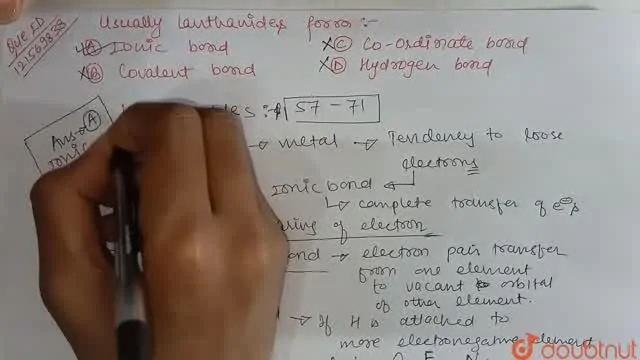 Que ID
121569838
Usually lanthanides form :-
A Ionic bond
C Co-ordinate bond
B Covalent bond
D Hydrogen bond
57 - 71
Ans- A
Ionic
→ metal → Tendency to loose
electrons
Ionic bond ←
↳ complete transfer of e⊖s
of electron
→ electron pair transfer
from one element
to vacant orbital
of other element.
→ If H is attached to
more electronegative element
doubtnut